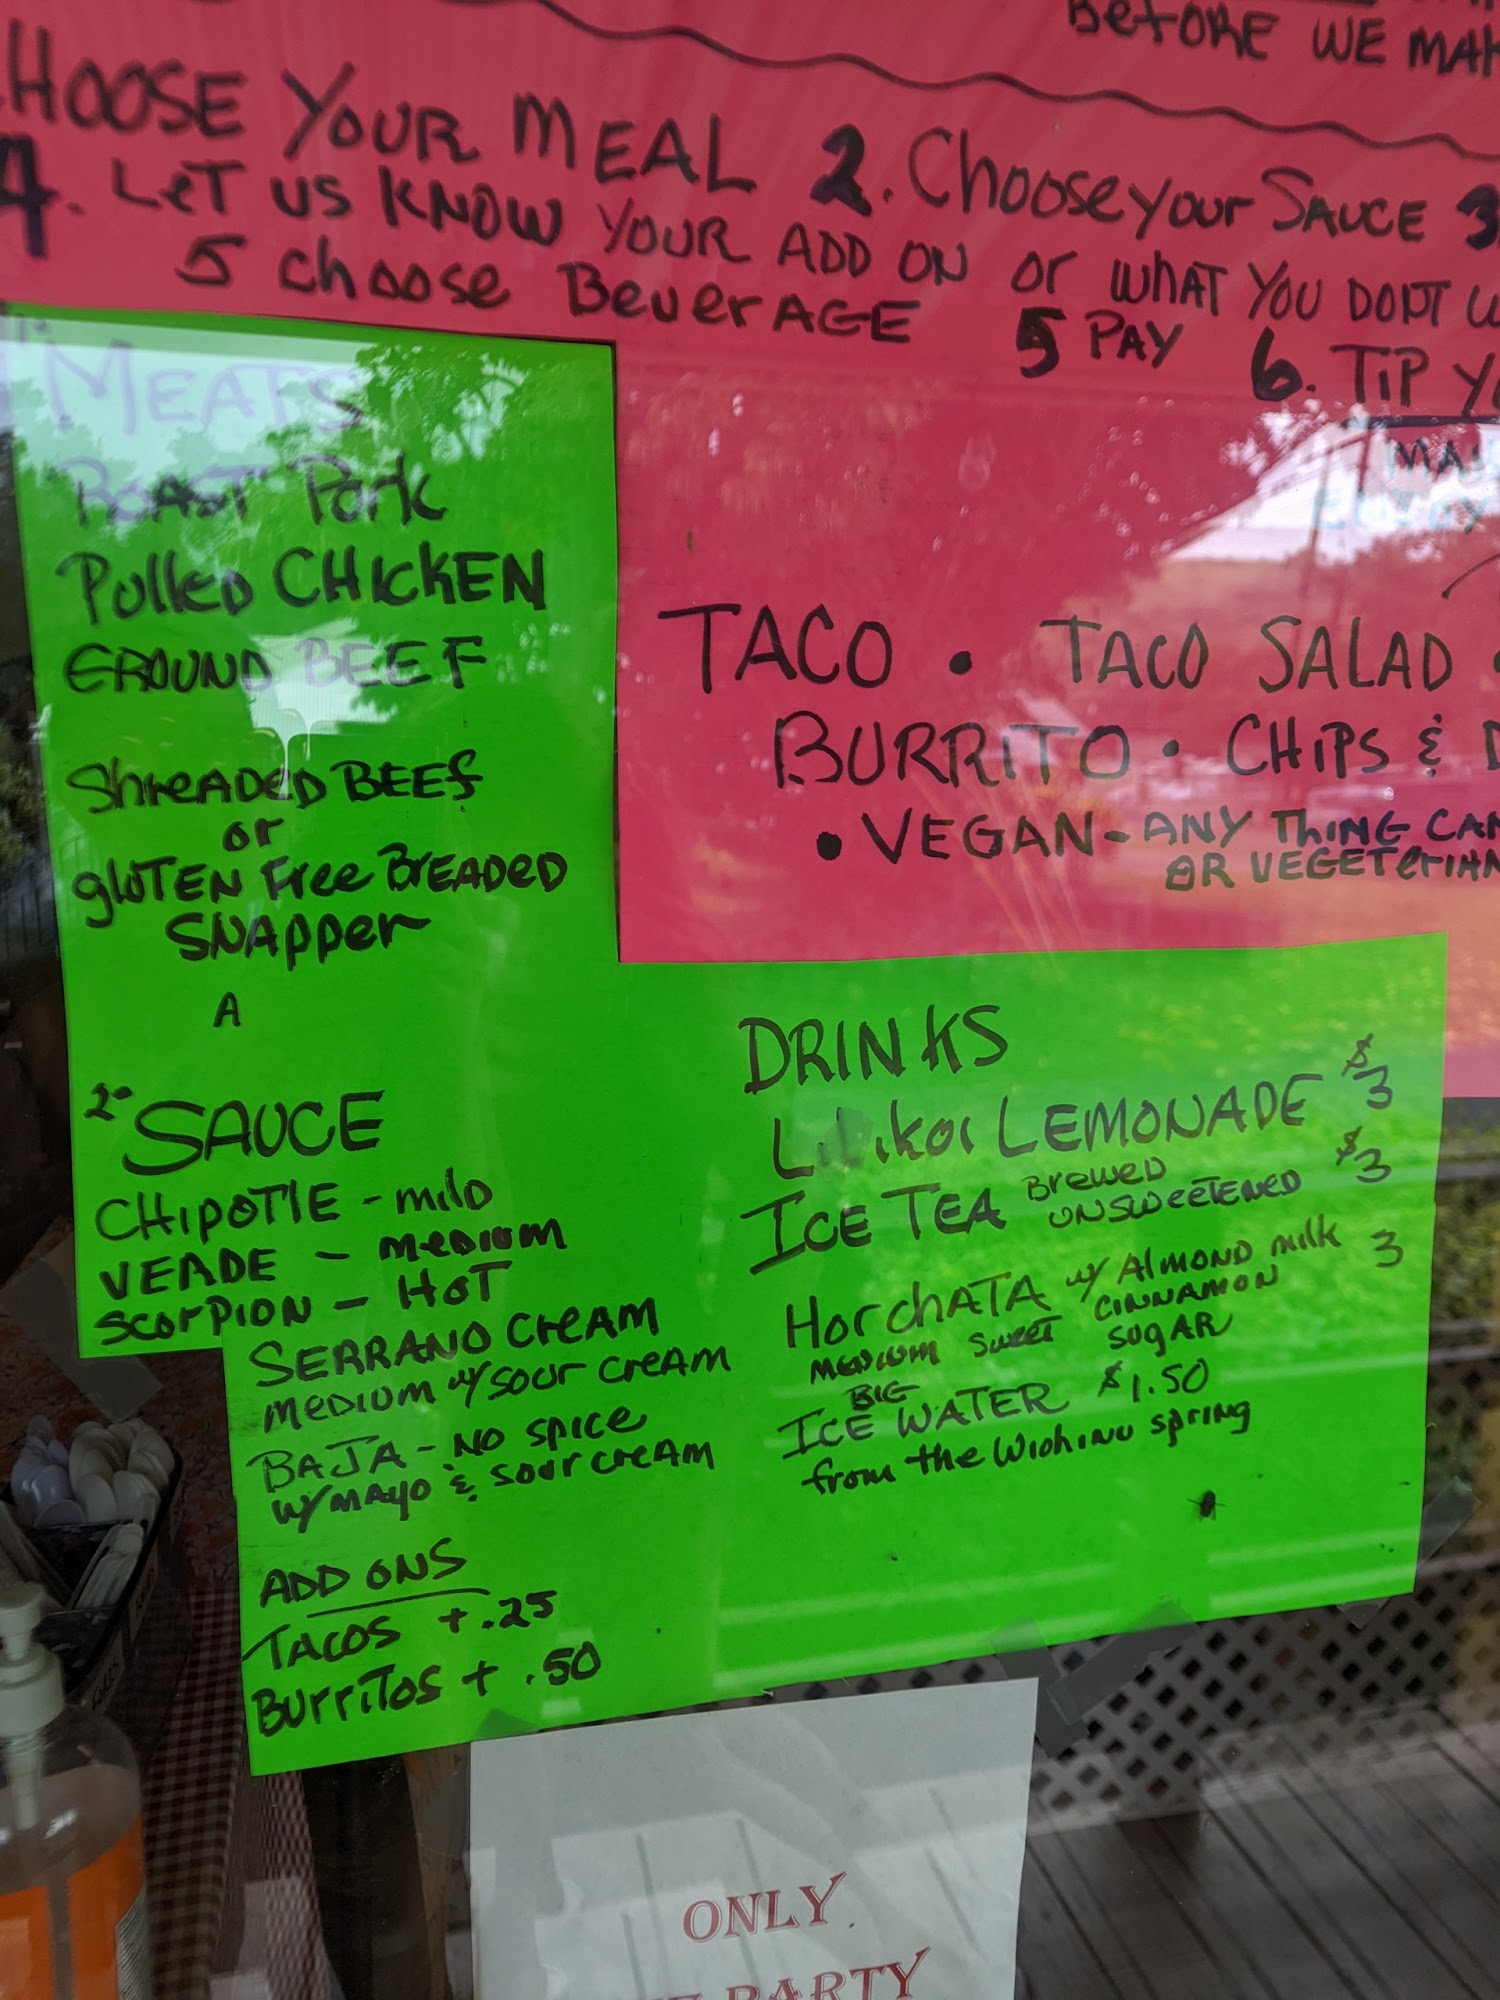 BEFORE WE MAK
HOOSE YOUR MEAL 2. Choose your SAUCE 3
4. LET US KNOW YOUR ADD ON OR WHAT YOU DON'T W
5 choose BeverAGE 5 PAY 6. TIP Y
1. MEATS
ROAST Pork
Pulled CHICKEN
GROUND BEEF
ShreADED BEEF
or
gluTEN Free BreADED
SNAPper
A
MA
ENJOY
TACO • TACO SALAD •
BURRITO • CHIPS & D
• VEGAN - ANY THING CAN
OR VEGETERIAN
2. SAUCE
CHIPOTLE - mild
VERDE - medium
SCORPION - HOT
SERRANO CREAM
MEDIUM w/ SOUR CREAM
BAJA - NO SPICE
w/ MAYO & SOUR CREAM
ADD ONS
TACOS + .25
BURRITOS + .50
DRINKS
LILIKOI LEMONADE $3
ICE TEA BREWED UNSWEETENED $3
HorchATA w/ ALMOND milk 3
MEDIUM SWEET CINNAMON
SUGAR
BIG
ICE WATER $1.50
from the Wiohinu spring
ONLY
PARTY